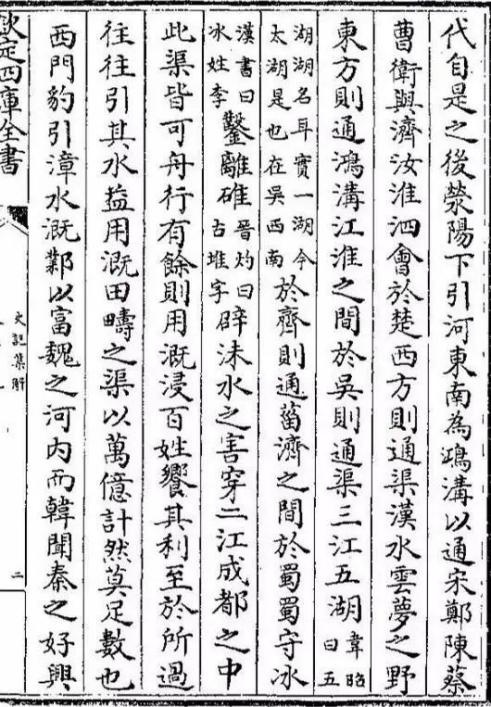 代自是之後滎陽下引河東南為鴻溝以通宋鄭陳蔡
曹衛與濟汝淮泗會於楚西方則通渠漢水雲夢之野
東方則通鴻溝江淮之間於吳則通渠三江五湖韋昭曰五
湖湖名耳實一湖今太湖是也在吳西南於齊則通菑濟之間於蜀蜀守冰
漢書曰冰姓李鑿離碓晉灼曰古堆字辟沫水之害穿二江成都之中
此渠皆可舟行有餘則用溉浸百姓饗其利至於所過
往往引其水益用溉田疇之渠以萬億計然莫足數也
西門豹引漳水溉鄴以富魏之河內而韓聞秦之好興
欽定四庫全書
史記集解
二